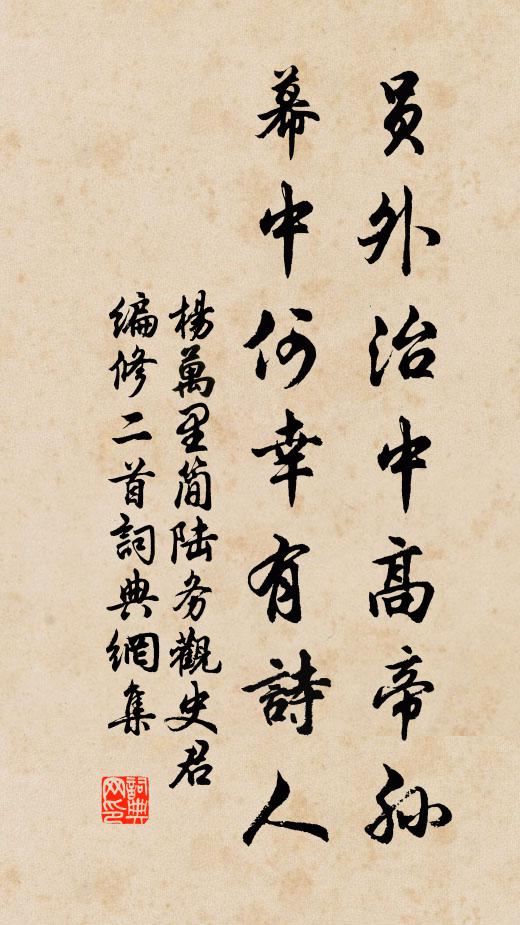 员外治中高帝孙
幕中何幸有詩人
楊萬里简陆务觀史君
编修二首詞典網集
詞典网印